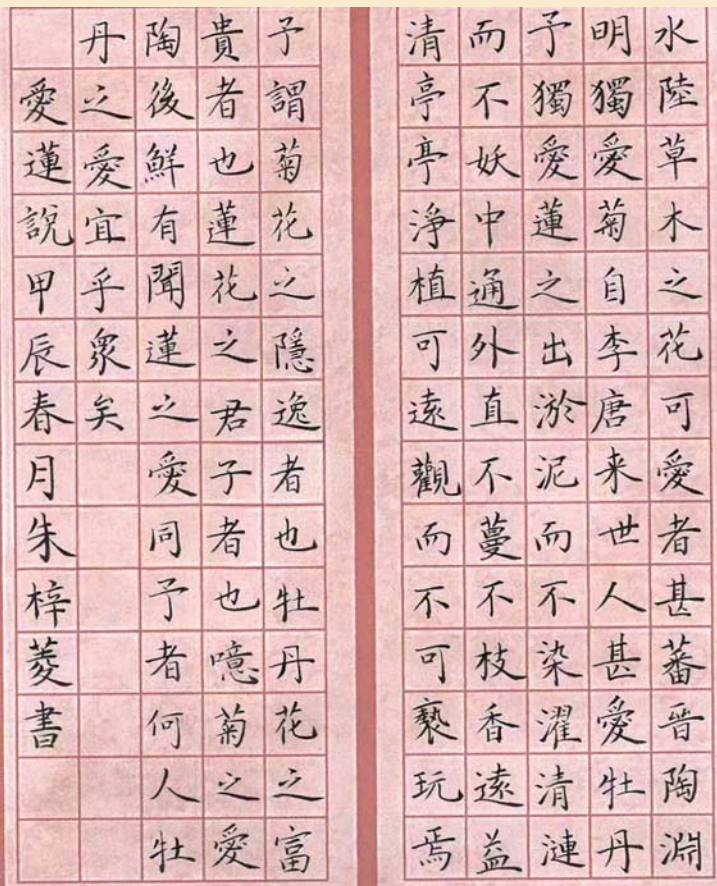 水陸草木之花可愛者甚蕃晉陶淵
明獨愛菊自李唐来世人甚愛牡丹
予獨愛蓮之出淤泥而不染濯清漣
而不妖中通外直不蔓不枝香遠益
清亭亭淨植可遠觀而不可褻玩焉
予謂菊花之隱逸者也牡丹花之富
貴者也蓮花之君子者也噫菊之愛
陶後鮮有聞蓮之愛同予者何人牡
丹之愛宜乎衆矣
愛蓮說甲辰春月朱梓菱書